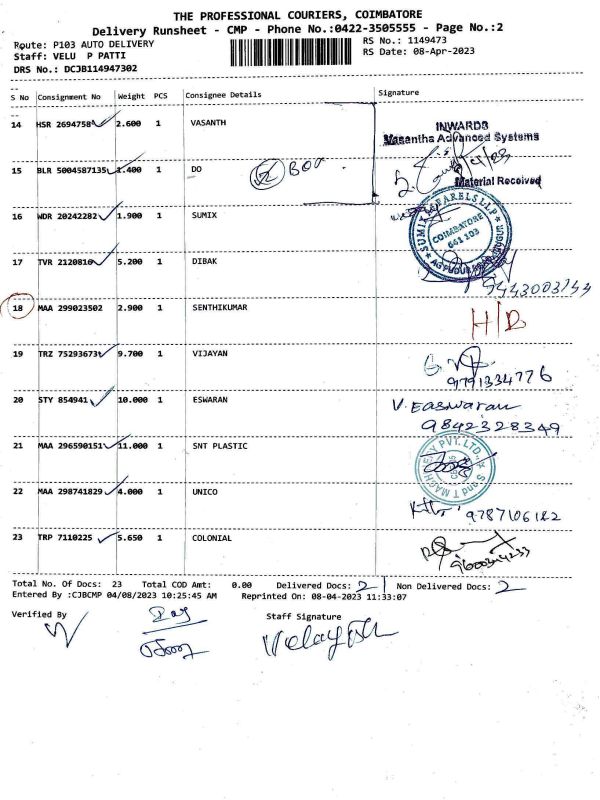 THE PROFESSIONAL COURIERS, COIMBATORE
Delivery Runsheet - CMP - Phone No.:0422-3505555 - Page No.:2
Route: P103 AUTO DELIVERY
RS No.: 1149473
Staff: VELU P PATTI
RS Date: 08-Apr-2023
DRS No.: DCJB114947302
S No Consignment No Weight PCS Consignee Details Signature
14 HSR 2694758 2.600 1 VASANTH
INWARDS
Vasantha Advanced Systems
15 BLR 5004587135 1.400 1 DO
2 BOX
Material Received
16 WDR 20242282 1.900 1 SUMIX
SUMIX APPARELS LLP
COIMBATORE
641 103
17 TVR 2120816 5.200 1 DIBAK
9443003744
18 MAA 299023502 2.900 1 SENTHIKUMAR
H/D
19 TRZ 75293673 9.700 1 VIJAYAN
9791334776
20 STY 854941 10.000 1 ESWARAN
V. Easwaran
9842328349
21 MAA 296590151 11.000 1 SNT PLASTIC
22 MAA 298741829 4.000 1 UNICO
9787106182
23 TRP 7110225 5.650 1 COLONIAL
9600304233
Total No. Of Docs: 23 Total COD Amt: 0.00 Delivered Docs: 21 Non Delivered Docs: 2
Entered By :CJBCMP 04/08/2023 10:25:45 AM Reprinted On: 08-04-2023 11:33:07
Verified By
Staff Signature